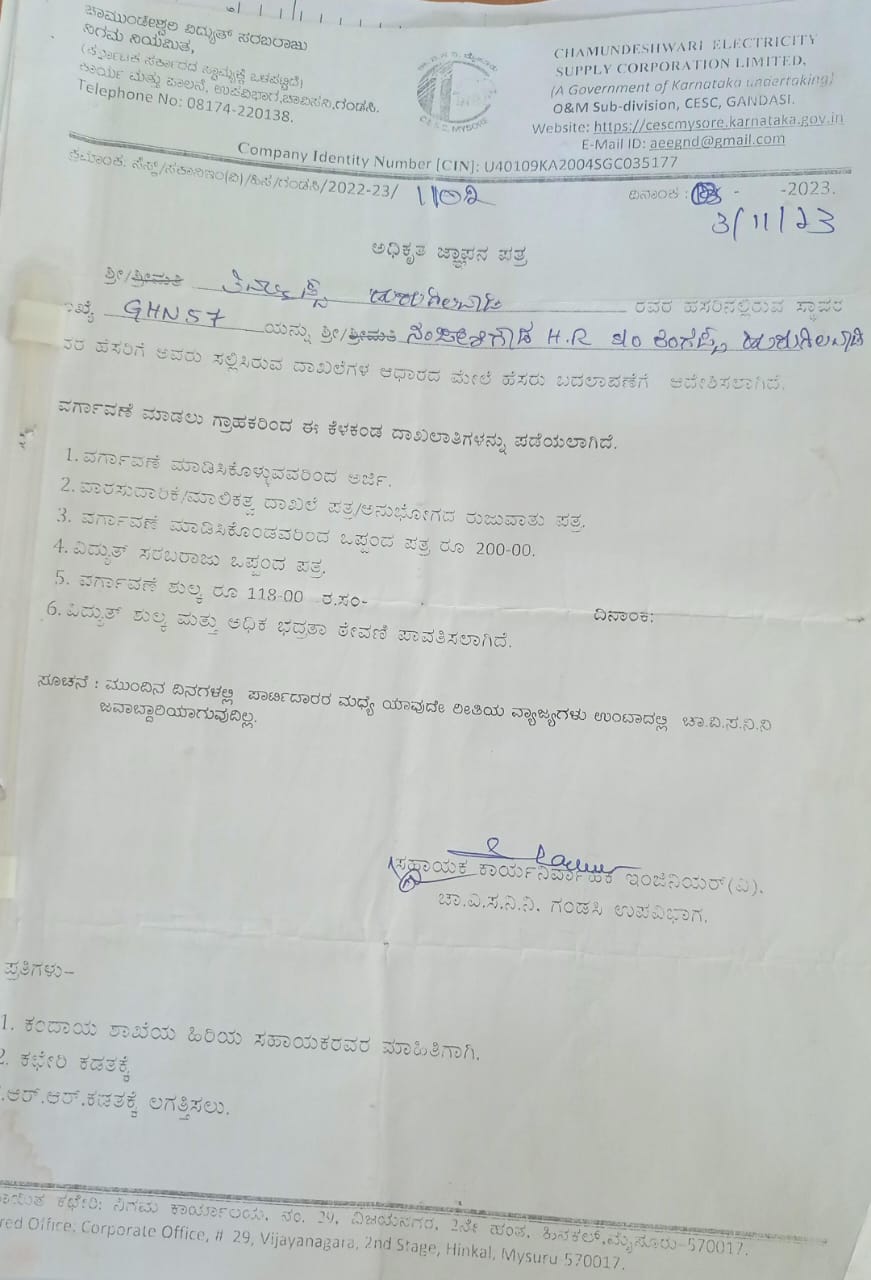 ಚಾಮುಂಡೇಶ್ವರಿ ವಿದ್ಯುತ್ ಸರಬರಾಜು
ನಿಗಮ ನಿಯಮಿತ,
(ಕರ್ನಾಟಕ ಸರ್ಕಾರದ ಸ್ವಾಮ್ಯಕ್ಕೆ ಒಳಪಟ್ಟಿದೆ)
ಕಾರ್ಯ ಮತ್ತು ಪಾಲನೆ, ಉಪವಿಭಾಗ,ಚಾವಿಸನಿ,ಗಂಡಸಿ.
Telephone No: 08174-220138.
CESC, MYSORE
CHAMUNDESHWARI ELECTRICITY
SUPPLY CORPORATION LIMITED,
(A Government of Karnataka undertaking)
O&M Sub-division, CESC, GANDASI.
Website: https://cescmysore.karnataka.gov.in
E-Mail ID: aeegnd@gmail.com
Company Identity Number [CIN]: U40109KA2004SGC035177
ಕ್ರಮಾಂಕ: /ಹಿಸ/ಗಂಡಸಿ/2022-23/ 1102
ದಿನಾಂಕ : - -2023.
3/11/23
ಅಧಿಕೃತ ಜ್ಞಾಪನ ಪತ್ರ
ಶ್ರೀ/ಶ್ರೀಮತಿ ರವರ ಹಸರಿನಲ್ಲಿರುವ ಸ್ಥಾವರ
ಖ್ಯೆ GHN57 ಯನ್ನು ಶ್ರೀ/ಶ್ರೀಮತಿ ನಂಜೇಗೌಡ H.R
ವರ ಹೆಸರಿಗೆ ಅವರು ಸಲ್ಲಿಸಿರುವ ದಾಖಲೆಗಳ ಆಧಾರದ ಮೇಲೆ ಹೆಸರು ಬದಲಾವಣೆಗೆ ಆದೇಶಿಸಲಾಗಿದೆ.
ವರ್ಗಾವಣೆ ಮಾಡಲು ಗ್ರಾಹಕರಿಂದ ಈ ಕೆಳಕಂಡ ದಾಖಲಾತಿಗಳನ್ನು ಪಡೆಯಲಾಗಿದೆ.
1. ವರ್ಗಾವಣೆ ಮಾಡಿಸಿಕೊಳ್ಳುವವರಿಂದ ಅರ್ಜಿ.
2. ವಾರಸುದಾರಿಕೆ/ಮಾಲಿಕತ್ವ ದಾಖಲೆ ಪತ್ರ/ಅನುಭೋಗದ ರುಜುವಾತು ಪತ್ರ.
3. ವರ್ಗಾವಣೆ ಮಾಡಿಸಿಕೊಂಡವರಿಂದ ಒಪ್ಪಂದ ಪತ್ರ ರೂ 200-00.
4. ವಿದ್ಯುತ್ ಸರಬರಾಜು ಒಪ್ಪಂದ ಪತ್ರ.
5. ವರ್ಗಾವಣೆ ಶುಲ್ಕ ರೂ 118-00 ರ.ಸಂ- ದಿನಾಂಕ:
6. ವಿದ್ಯುತ್ ಶುಲ್ಕ ಮತ್ತು ಅಧಿಕ ಭದ್ರತಾ ಠೇವಣಿ ಪಾವತಿಸಲಾಗಿದೆ.
ಸೂಚನೆ : ಮುಂದಿನ ದಿನಗಳಲ್ಲಿ ಪಾರ್ಟಿದಾರರ ಮಧ್ಯೆ ಯಾವುದೇ ರೀತಿಯ ವ್ಯಾಜ್ಯಗಳು ಉಂಟಾದಲ್ಲಿ ಚಾ.ವಿ.ಸ.ನಿ.ನಿ
ಜವಾಬ್ದಾರಿಯಾಗುವುದಿಲ್ಲ.
ಸಹಾಯಕ ಕಾರ್ಯನಿರ್ವಾಹಕ ಇಂಜಿನಿಯರ್(ವಿ).
ಚಾ.ವಿ.ಸ.ನಿ.ನಿ. ಗಂಡಸಿ ಉಪವಿಭಾಗ.
ಪ್ರತಿಗಳು-
1. ಕಂದಾಯ ಶಾಖೆಯ ಹಿರಿಯ ಸಹಾಯಕರವರ ಮಾಹಿತಿಗಾಗಿ.
2. ಕಛೇರಿ ಕಡತಕ್ಕೆ
.ಆರ್.ಆರ್.ಕಡತಕ್ಕೆ ಲಗತ್ತಿಸಲು.
ಕಛೇರಿ: ನಿಗಮ ಕಾರ್ಯಾಲಯ, ನಂ. 29, ವಿಜಯನಗರ, 2ನೇ ಹಂತ, ಹಿನಕಲ್,ಮೈಸೂರು-570017.
red Office, Corporate Office, # 29, Vijayanagara, 2nd Stage, Hinkal, Mysuru-570017.